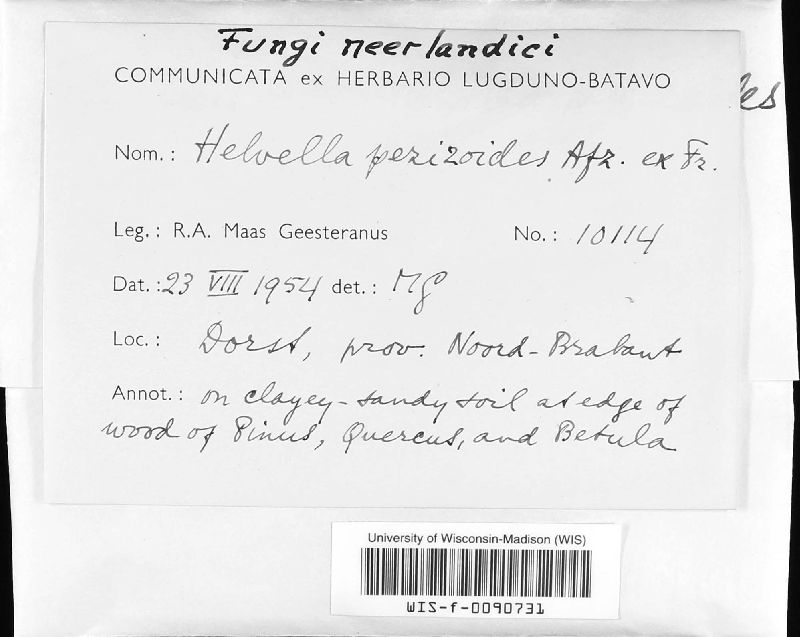 Fungi neerlandici
COMMUNICATA ex HERBARIO LUGDUNO-BATAVO
Nom.: Helvella pezizoides Afz. ex Fr.
Leg.: R.A. Maas Geesteranus No.: 10114
Dat.: 23 VIII 1954 det.: MG
Loc.: Dorst, prov. Noord-Brabant
Annot.: on clayey-sandy soil at edge of
wood of Pinus, Quercus, and Betula
University of Wisconsin-Madison (WIS)
WIS-f-0090731